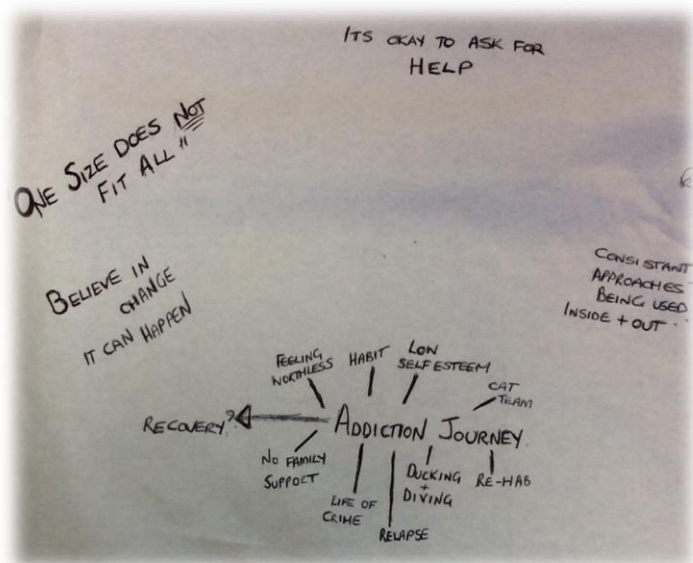 ITS OKAY TO ASK FOR
HELP
ONE SIZE DOES NOT
FIT ALL"
BELIEVE IN
CHANGE
IT CAN HAPPEN
CONSISTANT
APPROACHES
BEING USED
INSIDE + OUT
FEELING
WORTHLESS
HABIT
LOW
SELF ESTEEM
CAT
TEAM
RECOVERY?
ADDICTION JOURNEY
NO FAMILY
SUPPORT
LIFE OF
CRIME
RELAPSE
DUCKING
+
DIVING
RE-HAB